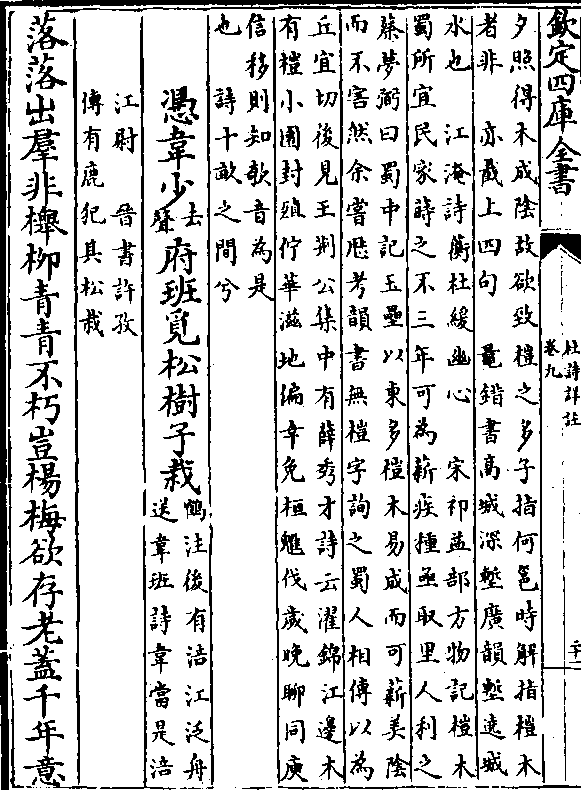 欽定四庫全書
杜詩詳註
卷九
夕照得木成陰故欲致榿之多子指何邕時解指榿木
者非　亦截上四句　鼂錯書高城深塹廣韻塹遶城
水也　江淹詩蘅杜緩幽心　宋祁益部方物記榿木
蜀所宜民家蒔之不三年可為薪疾種亟取里人利之
蔡夢弼曰蜀中記玉壘以東多榿木易成而可薪美陰
而不害然余嘗歴考韻書無榿字詢之蜀人相傳以為
丘宜切後見王荆公集中有薛秀才詩云濯錦江邊木
有榿小園封殖佇華滋地偏幸免桓魋伐歲晚聊同庾
信移則知欹音為是
也　詩十畝之間兮
憑韋少去聲府班覓松樹子栽
鶴注後有涪江泛舟
送韋班詩韋當是涪
江尉　晉書許孜
傳有鹿犯其松栽
落落出羣非櫸柳青青不朽豈楊梅欲存老蓋千年意